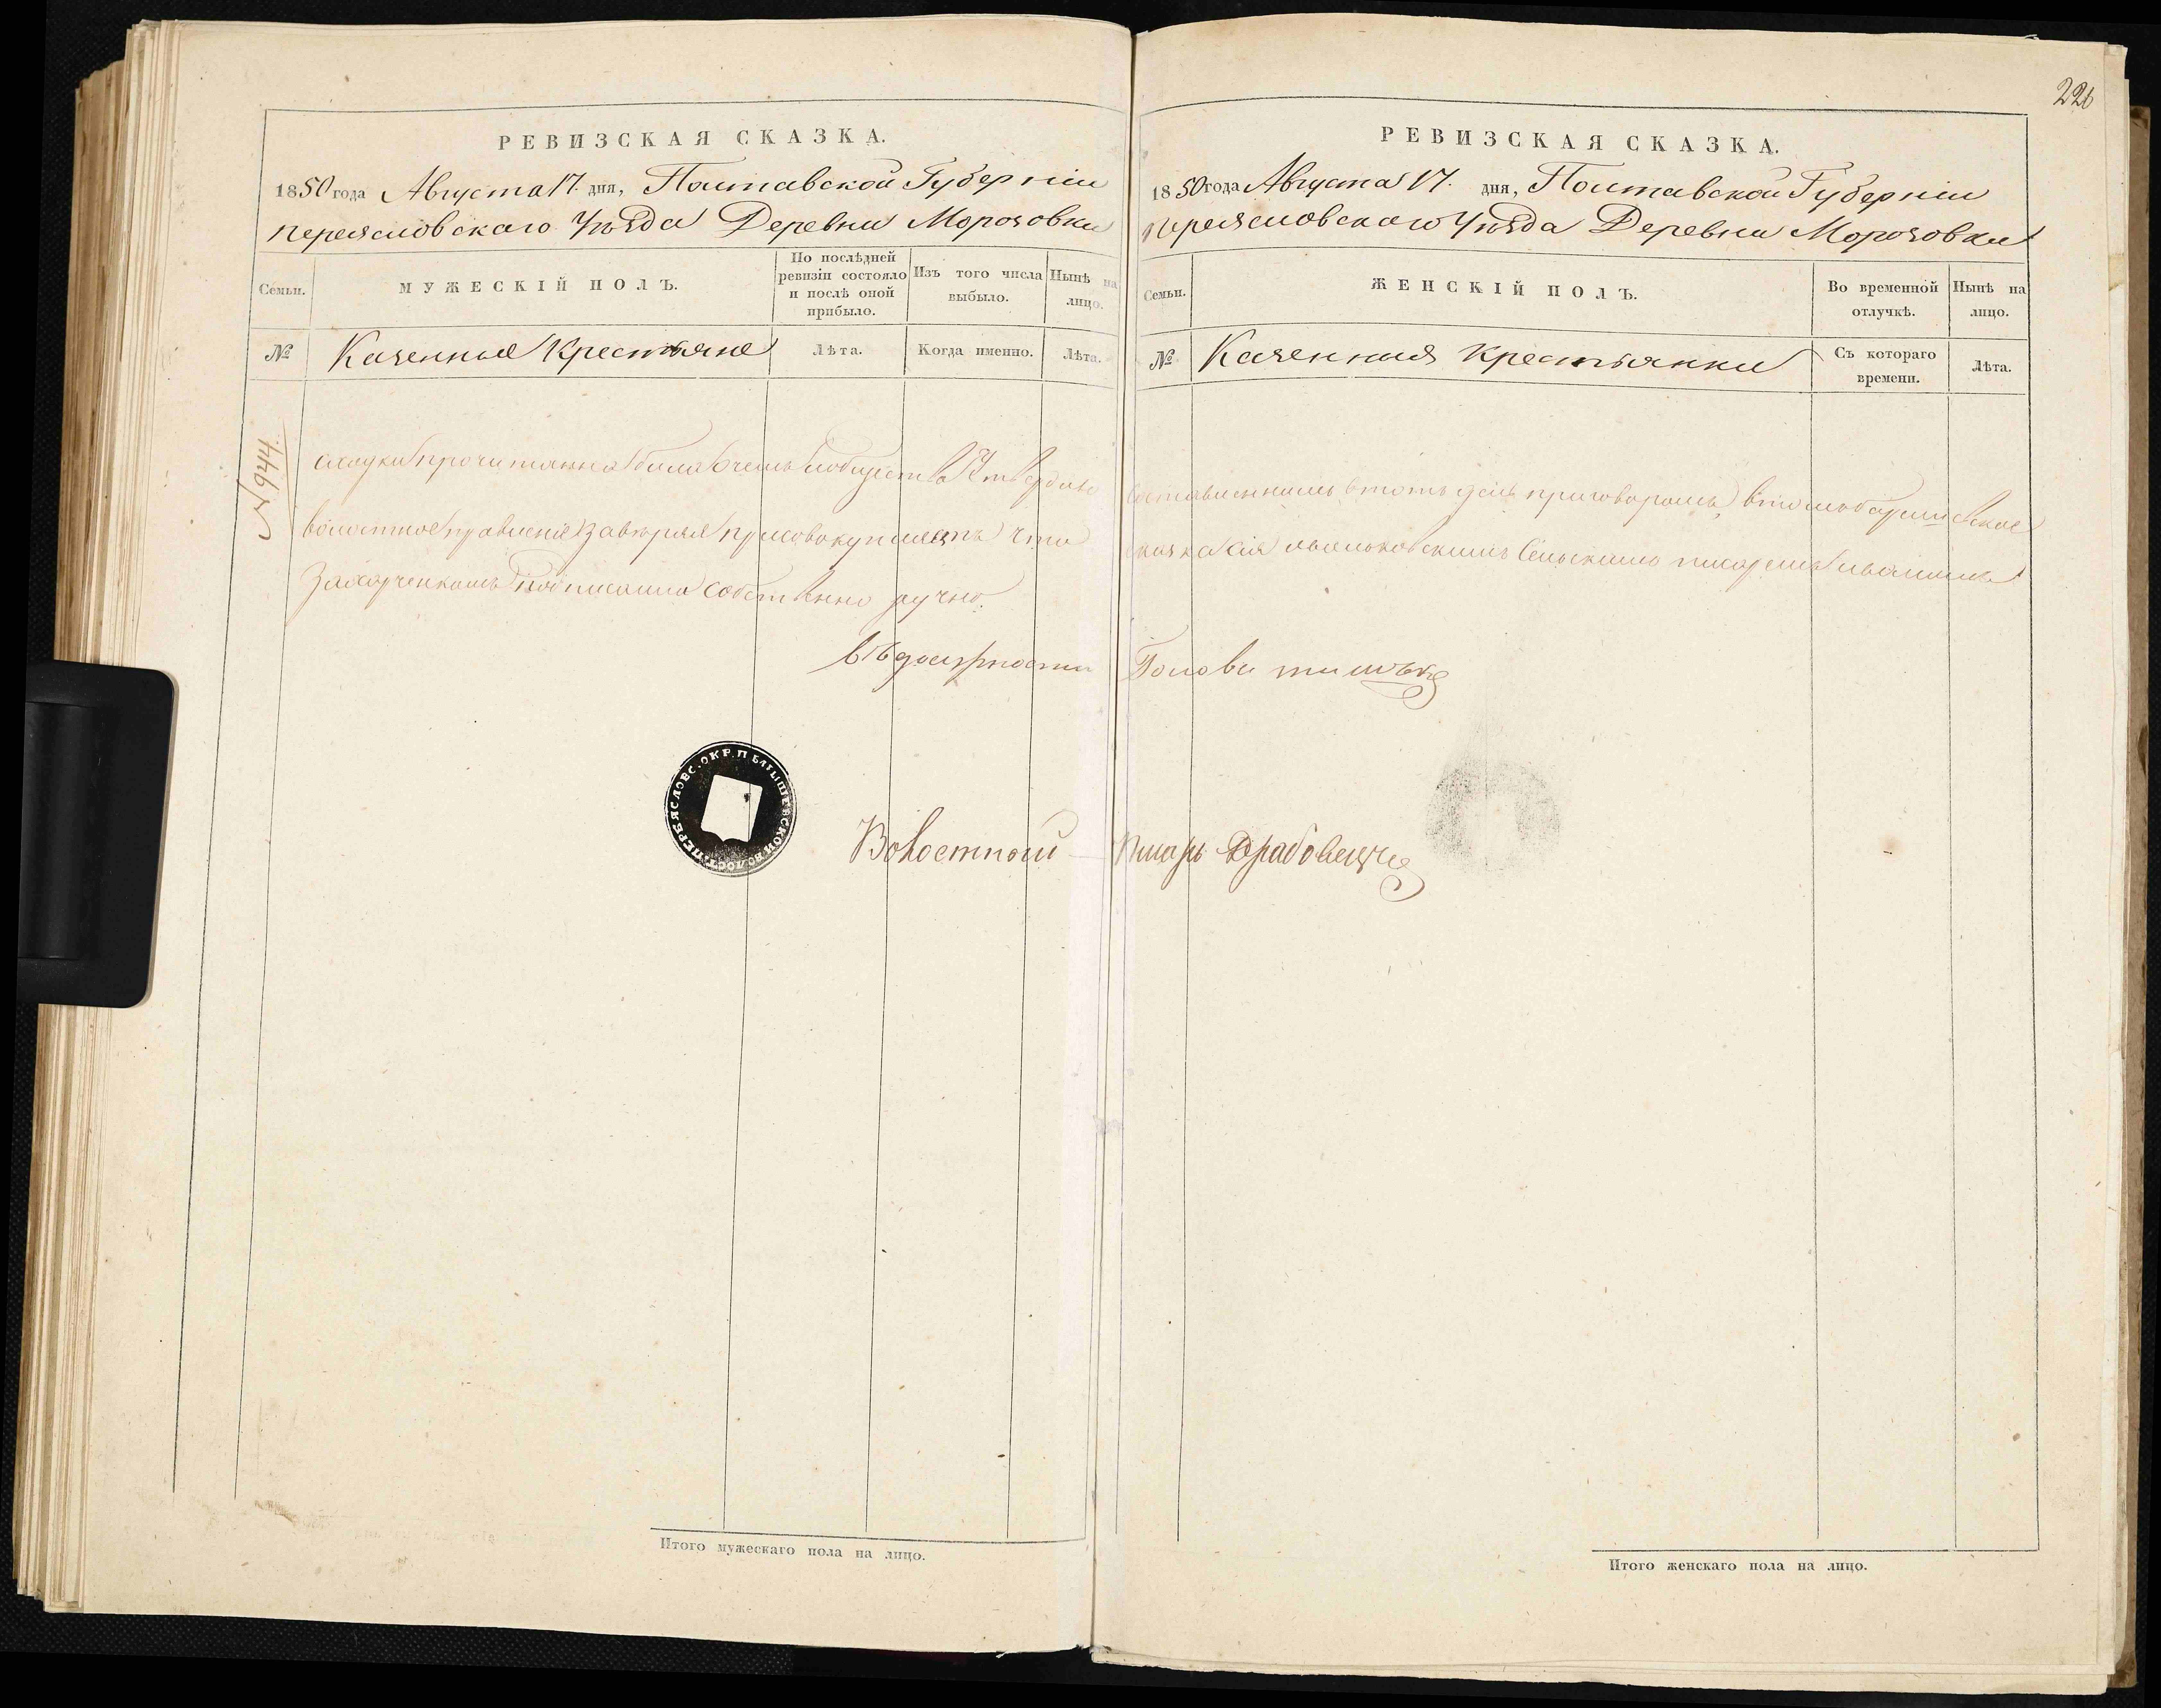 226
РЕВИЗСКАЯ СКАЗКА.
1850 года Августа 17. дня, Полтавской Губерніи
переясловскаго Уѣзда Деревни Морозовки
Семьи.
МУЖЕСКІЙ ПОЛЪ.
По послѣдней ревизіи состояло и послѣ оной прибыло.
Изъ того числа выбыло.
Нынѣ на лицо.
№
Казенные Крестьяне
Лѣта.
Когда именно.
Лѣта.
№ 944.
сказки прочитанна била и общества Утвердив
волостное правленіе завѣряя присовокупляетъ что
Захарченкомъ подписанна собственно ручно.
въ должности
ПЕРЕЯСЛОВС. ОКР. ВОЛОСТ.
Волостной
Итого мужескаго пола на лицо.
РЕВИЗСКАЯ СКАЗКА.
1850 года Августа 17. дня, Полтавской Губерніи
переясловскаго Уѣзда Деревни Морозовки
Семьи.
ЖЕНСКІЙ ПОЛЪ.
Во временной отлучкѣ.
Нынѣ на лицо.
№
Казенния крестьянки
Съ котораго времени.
Лѣта.
составленнимъ втотъ день приговоромъ втомъ
сказка сія Сельскимъ писаремъ
Голови
Писарь Драбовецъ
Итого женскаго пола на лицо.